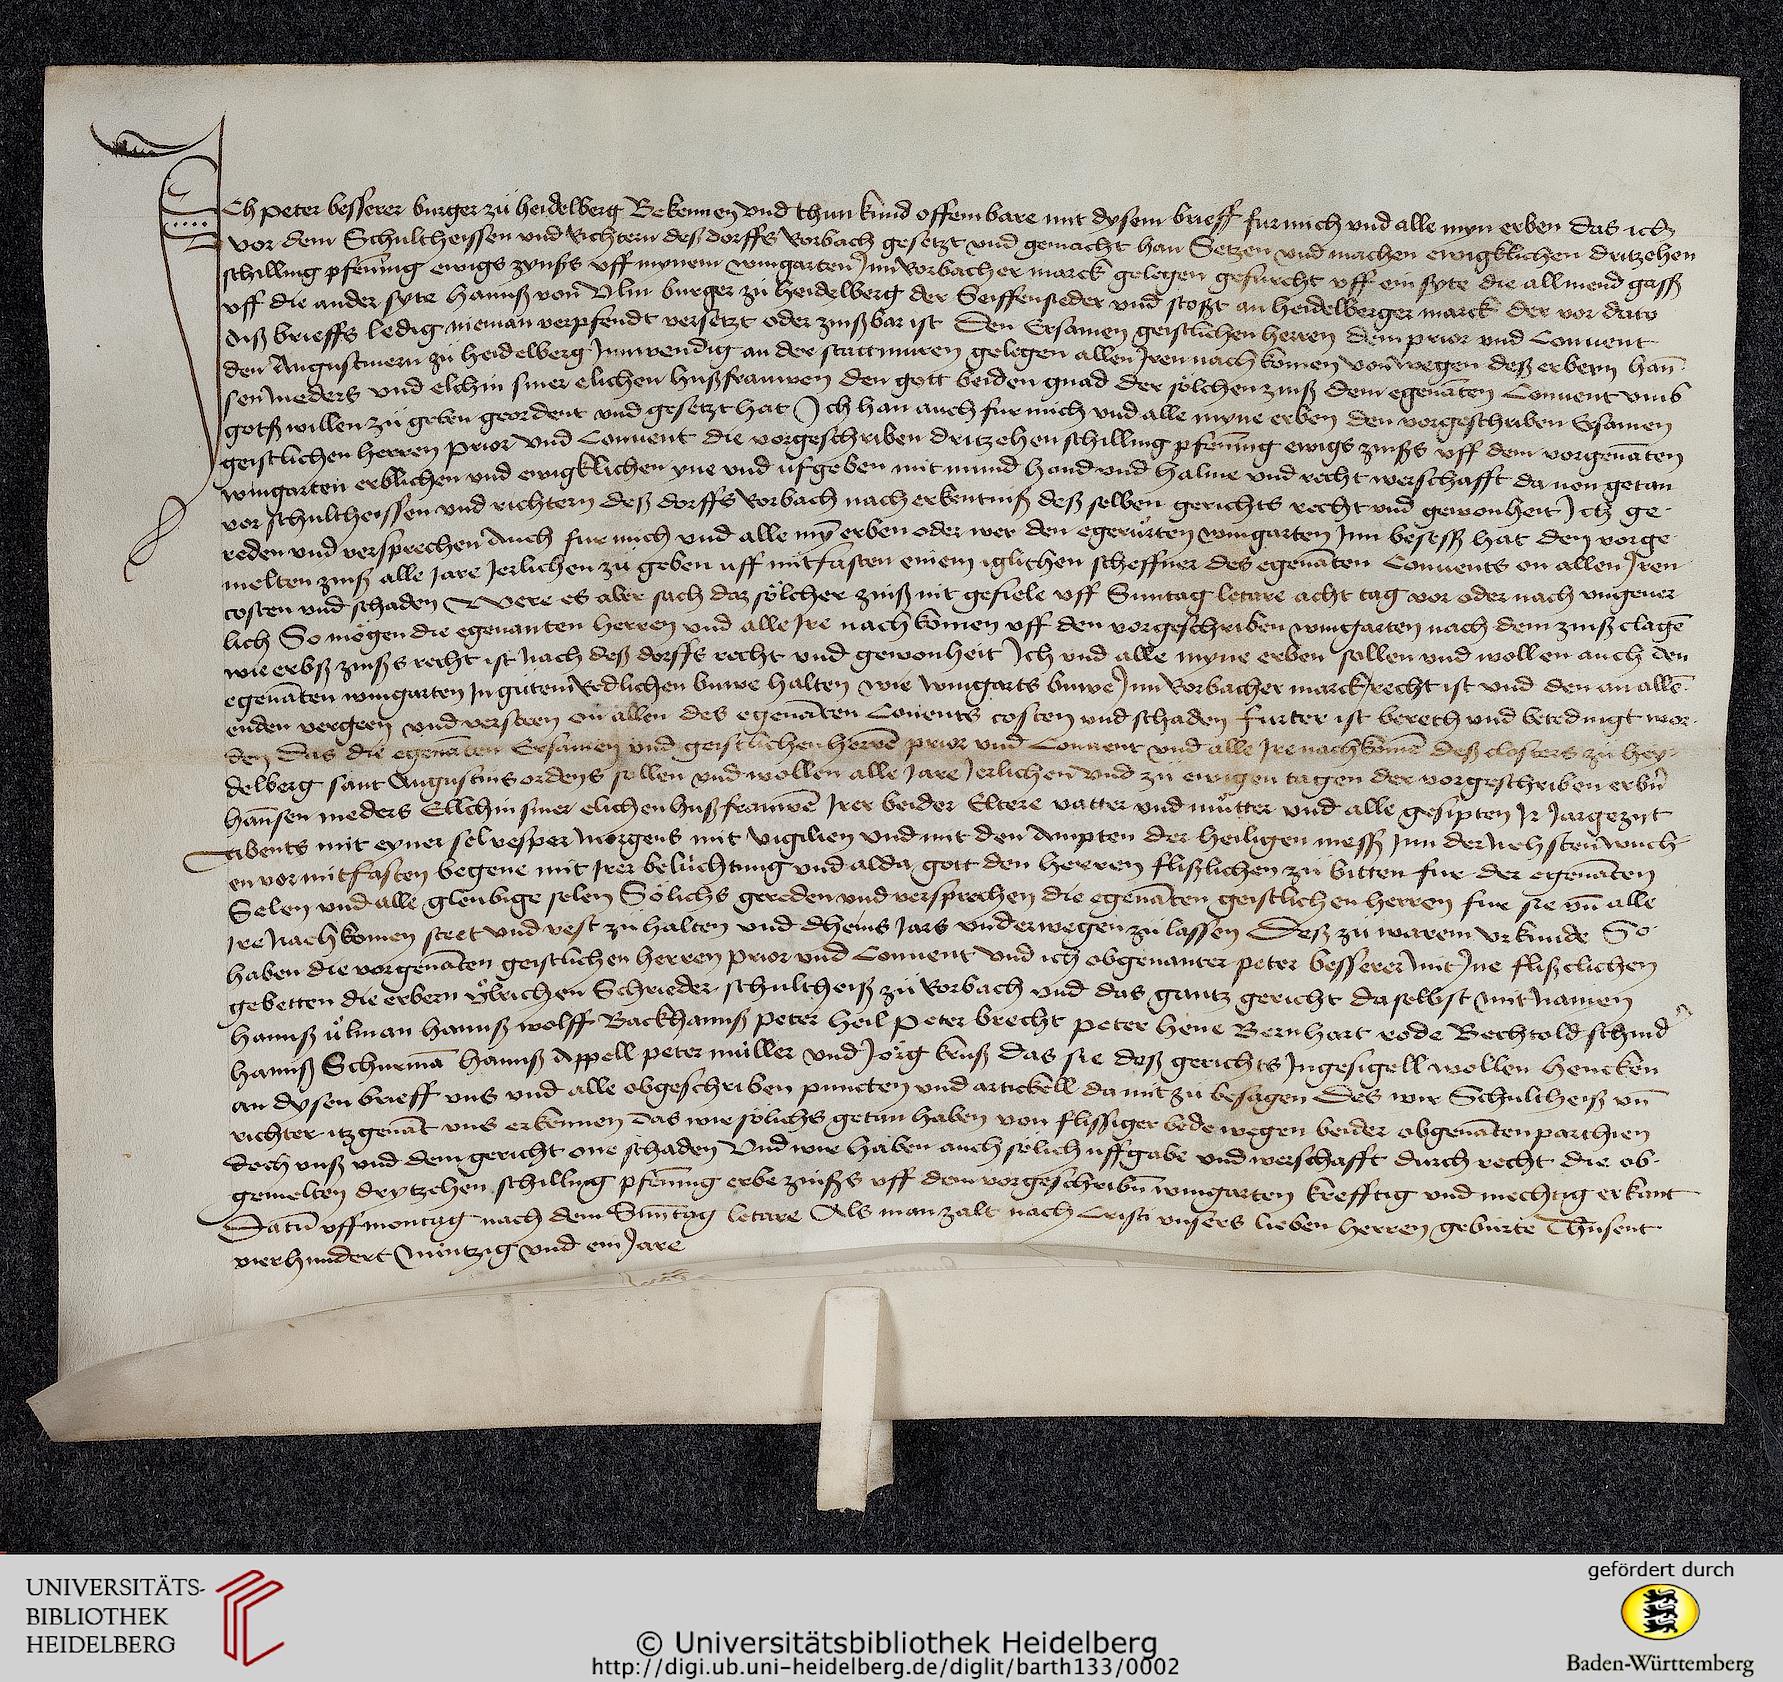 Ich Peter besserer burger zů heidelberg Bekennen vnd thun kund offembare mit dysem brieff fur mich vnd alle myn erben das ich
vor dem Schultheissen vnd Richtern deß dorffs Rorbach gesetzt vnd gemacht han Setzen vnd machen ewigklichen dritzehen
schilling pfening ewigs zynßs vff mynem wingarten Inn Rorbacher marck gelegen gefurcht vff ein syte die allmend gasß
vff die ander syte hannß von Vlm burger zu heidelberg der Seiffensieder vnd stoßt an heidelberger marck der vor dato
diß brieffs ledig nieman verpfendt versetzt oder zinßbar ist Den Ersamen geistlichen herren dem prior vnd Conuent
den Augustinern zů heidelberg Innwendig an der stattmuren gelegen allen Iren nachkomen von wegen deß erbern han
sen meders vnd elchin siner elichen hußfrauwen den gott beiden gnad der sölchen zinß dem egenāten Conuent vmb
gotß willen zů geben geordent vnd gesetzt hat Ich han auch fur mich vnd alle myne erben den vorgeschriben Ersamen
geistlichen herren prior vnd Conuent die vorgeschriben dritzehen schilling pfening ewigs zinßs vff dem vorgenāten
wingarten erblichen vnd ewigklichen yne vnd ufgeben mit mund hand vnd halme vnd recht werschafft da uon getan
vor schultheissen vnd richtern deß dorffs Rorbach nach erkentniß deß selben gerichts recht vnd gewonheit Ich ge-
reden vnd versprechen Auch fur mich vnd alle mȳ erben oder wer den egerůrten wingarten Inn besesß hat den vorge
melten zinß alle Jare Jerlichen zů geben uff mitfasten einem iglichen scheffner des egenāten Conuents on allen Iren
costen vnd schaden Were es aber sach daz sölcher zinß nit gefiele vff Sunntag letare acht tag vor oder nach vngeuer
lich So mögen die egenanten herren vnd alle Ire nachkomen vff den vorgeschriben wingarten nach dem zinß clagē
wie erbß zinßs recht ist nach deß dorffs recht vnd gewonheit Ich vnd alle myne erben sollen vnd wollen auch den
egenāten wingarten In gůtem Redlichen buwe halten wie wingarts buwe Inn Rorbacher marck recht ist vnd den an allē
enden vergeen vnd versteen on allen des egenāten Couents costen vnd schaden Furter ist beretth vnd beredingt wor-
den Das die egenāten Ersamen vnd geistlichen herrē prior vnd Conuent vnd alle Ire nachkomē deß closters zů hey-
delberg sant Augustins ordens sollen vnd wollen alle Jare Jerlichen vnd zů ewigen tagen der vorgeschriben erbn̄
hānsen meders Ellchin siner elichen hußfrauwē Irer beider Eltere vatter vnd můtter vnd alle gesipten Ir Jargezijt
Abents mit eyner selvesper morgens mit vigilien vnd mit den Ampten der heiligen messß Inn der nehsten wuch
en vor mitfasten begene mit Irer belüchtung vnd alda gott den herren flißlichen zů bitten fur der egenāten
Selen vnd alle gleubige selen Sölichs gereden vnd versprechen die egenāten geistlichen herren fur sie vn̄ alle
Ire Nachkomen stett vnd vest zu halten vnd dheins Jars vnderwegen zu lassen Deß zů warem Vrkunde So
haben die vorgenāten geistlichen herren prior vnd Conuent vnd ich obgenanter peter besserer mit Ine flißclichen
gebetten die erbern Vlrichen Schrieder schultheiß zů Rorbach vnd das gantz gericht daselbst mit Namen
hannß ůlman hannß wolff Backhannß peter heil Peter brecht peter hene Bernhart rode Bechtold schind
hannß Schurmā hannß Appell peter müller vnd Jörg kruß das sie deß gerichts Ingesigell wollen hencken
an dysen brieff vns vnd alle obgeschriben puncten vnd artickell da mit zů besagen Des wir Schultheiß vn̄
richter itzgenāt vns erkennen das wir sölichs getan haben von flissiger bede wegen beider obgenāten parthien
doch vnß vnd dem gericht one schaden Vnd wir haben auch sölich uffgabe vnd werschafft durch recht die ob-
gemelten drytzehen schilling pfening erbe zinßs vff dem vorgeschribn̄ wingarten krefftig vnd mechtig erkant
Datū vff montag nach dem Sūntag letare Als man zalt nach Cristi vnsers lieben herren gebürte Thusent
vierhundert Nüntzig vnd ein Jare
UNIVERSITÄTS-
BIBLIOTHEK
HEIDELBERG
© Universitätsbibliothek Heidelberg
http://digi.ub.uni-heidelberg.de/diglit/barth133/0002
gefördert durch
Baden-Württemberg